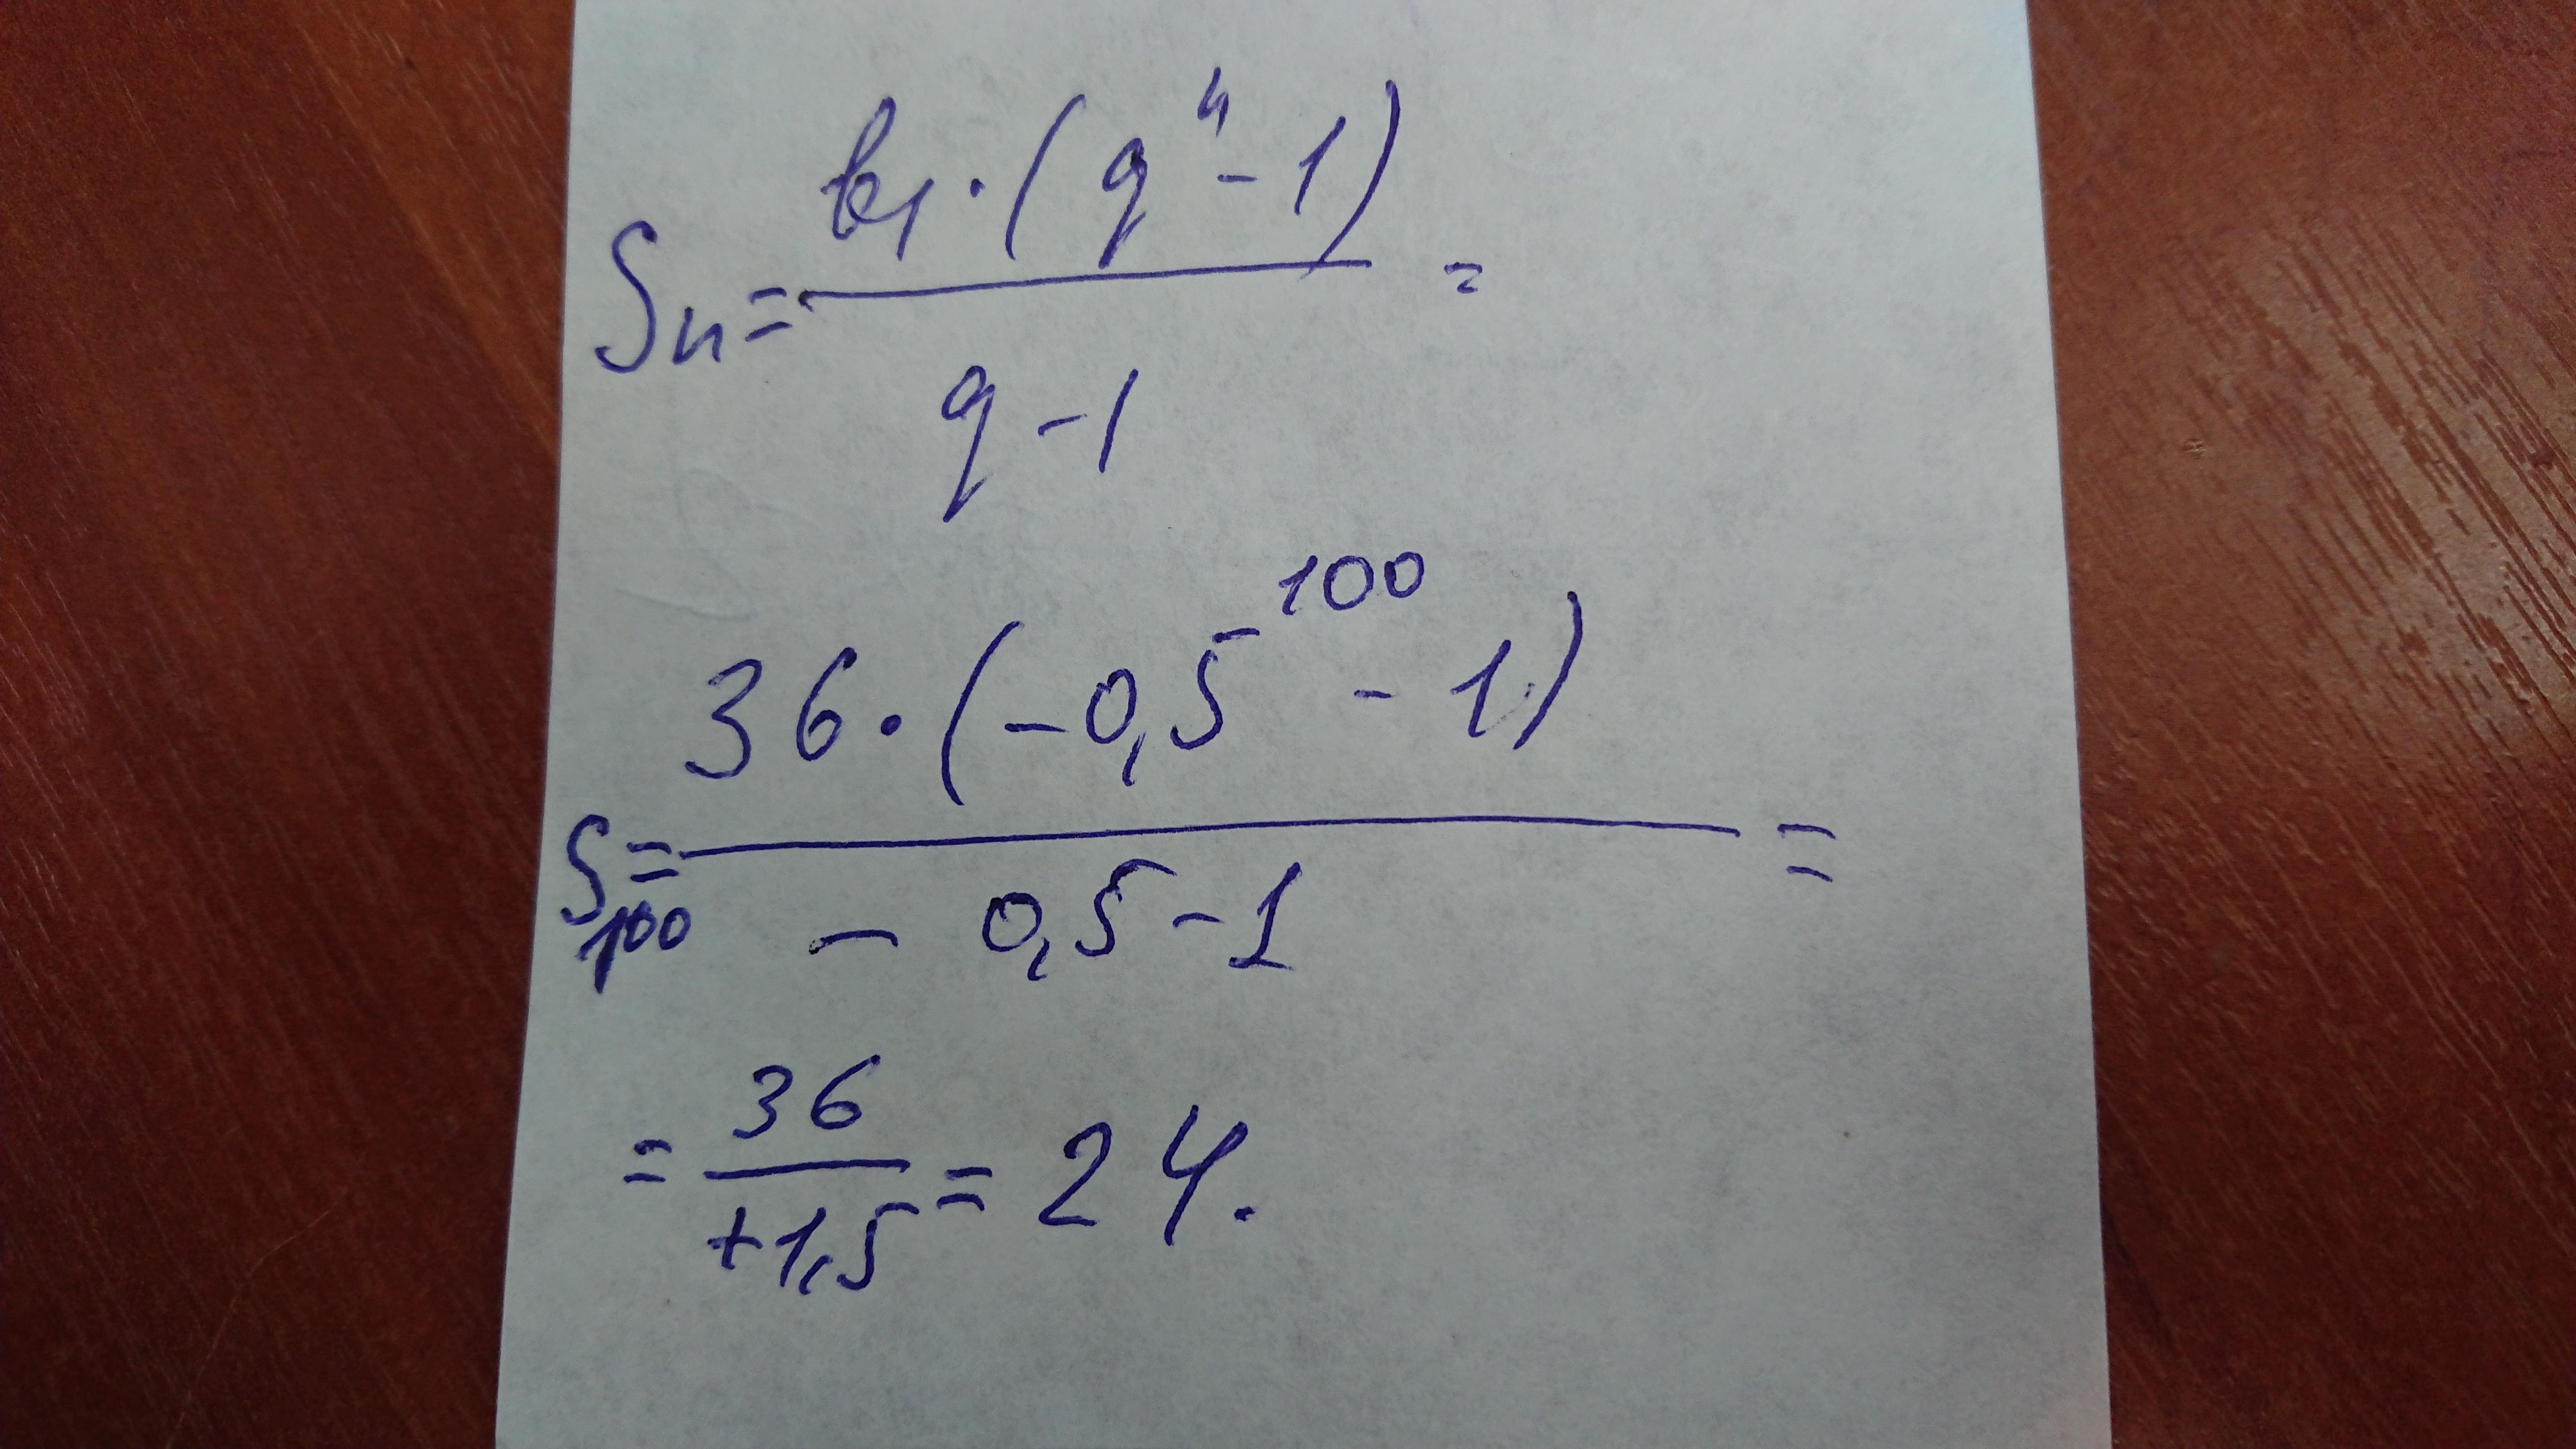 Sn = b1 · (q^n - 1) / (q - 1) =
S100 = 36 · (-0,5^100 - 1) / (-0,5 - 1) =
= 36 / (+1,5) = 24.